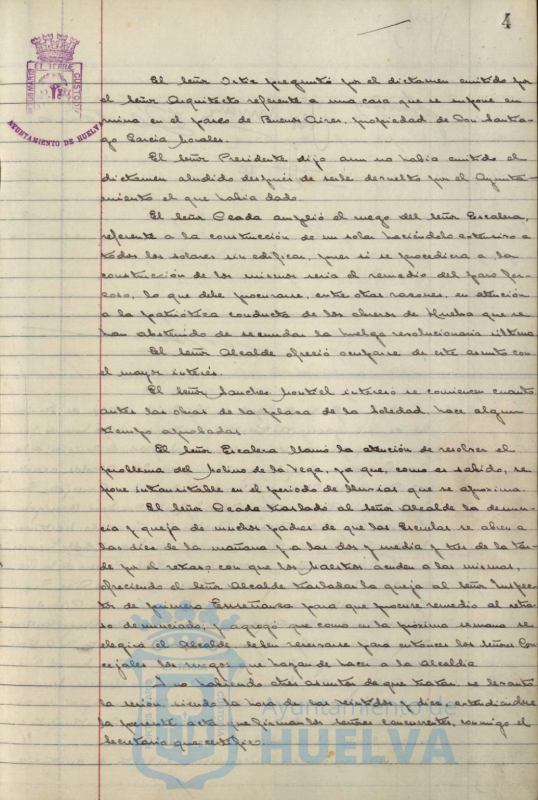 4
PORTUS MARIS ET TERRAE CUSTODIA
AYUNTAMIENTO DE HUELVA
El Señor Ortiz preguntó por el dictamen emitido por
el Señor Arquitecto referente a una casa que se supone en
ruina en el paseo de Buenos Aires, propiedad de Don Santia-
go Garcia Morales.
El Señor Presidente dijo aun no habia emitido el
dictamen aludido después de serle devuelto por el Ayunta-
miento el que habia dado.
El Señor Ceada amplió el ruego del Señor Escalera,
referente a la construcción de un solar haciéndolo extensivo a
todos los solares sin edificar, pues si se procediera a la
construcción de los mismos seria el remedio del paro for-
zoso, lo que debe procurarse, entre otras razones, en atención
a la patriótica conducta de los obreros de Huelva que se
han abstenido de secundar la huelga revolucionaria última
El Señor Alcalde ofreció ocuparse de este asunto con
el mayor interés.
El Señor Sanchez Montiel interesó se comiencen cuanto
antes las obras de la plaza de la Soledad, hace algun
tiempo aprobadas.
El Señor Escalera llamó la atención de resolver el
problema del Molino de la Vega, ya que, como es sabido, se
pone intransitable en el periodo de lluvias que se aproxima.
El Señor Ceada trasladó al Señor Alcalde la denun-
cia y queja de muchos padres de que las Escuelas se abren a
las diez de la mañana y a las dos y media y tres de la tar-
de por el retraso con que los Maestros acuden a las mismas,
ofreciendo el Señor Alcalde trasladar la queja al Señor Inspec-
tor de primera Enseñanza para que procure remedio al retra-
so denunciado; y agregó que como en la próxima semana se
elegirá el Alcalde deben reservarse para entonces los señores Con-
cejales los ruegos que hayan de hacer a la Alcaldia.
Y no habiendo otros asuntos de que tratar se levantó
la sesión siendo la hora de las veintidos y diez extendiéndose
la presente acta que firman los señores concurrentes, conmigo el
Secretario que certifico.
Ayuntamiento de
HUELVA